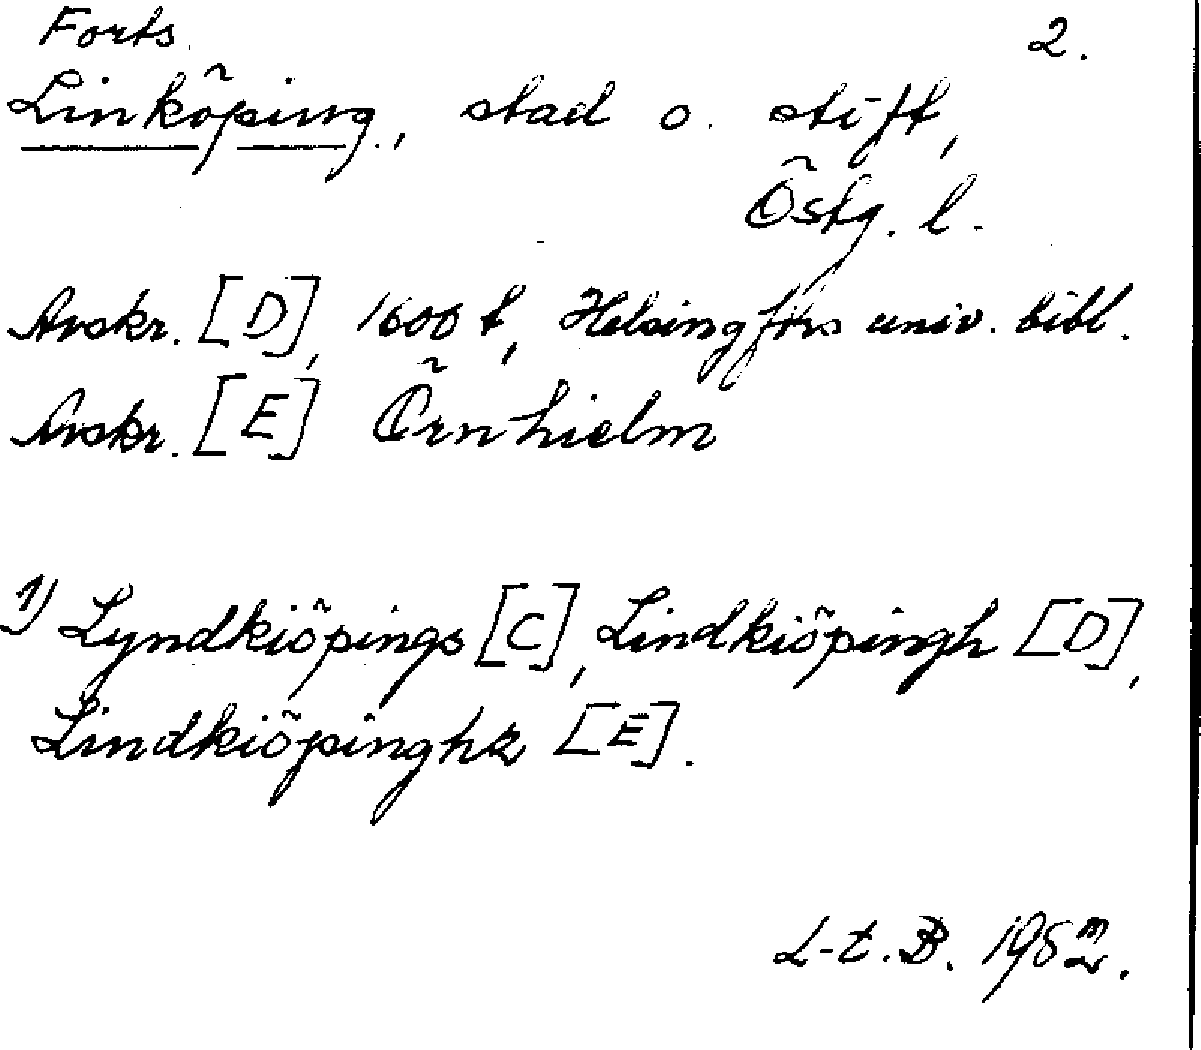 Forts. 2.
Linköping, stad o. stift,
Östg. l.
Avskr. [D], 1600 t, Helsingfors univ. bibl.
Avskr. [E] Örnhielm
1) Lyndkiöpings [C], Lindkiöpingh [D],
Lindkiöpinghz [E].
L-t. B.